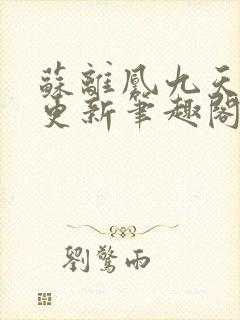 蘇離鳳九天
更新筆趣閣
劉驚雨